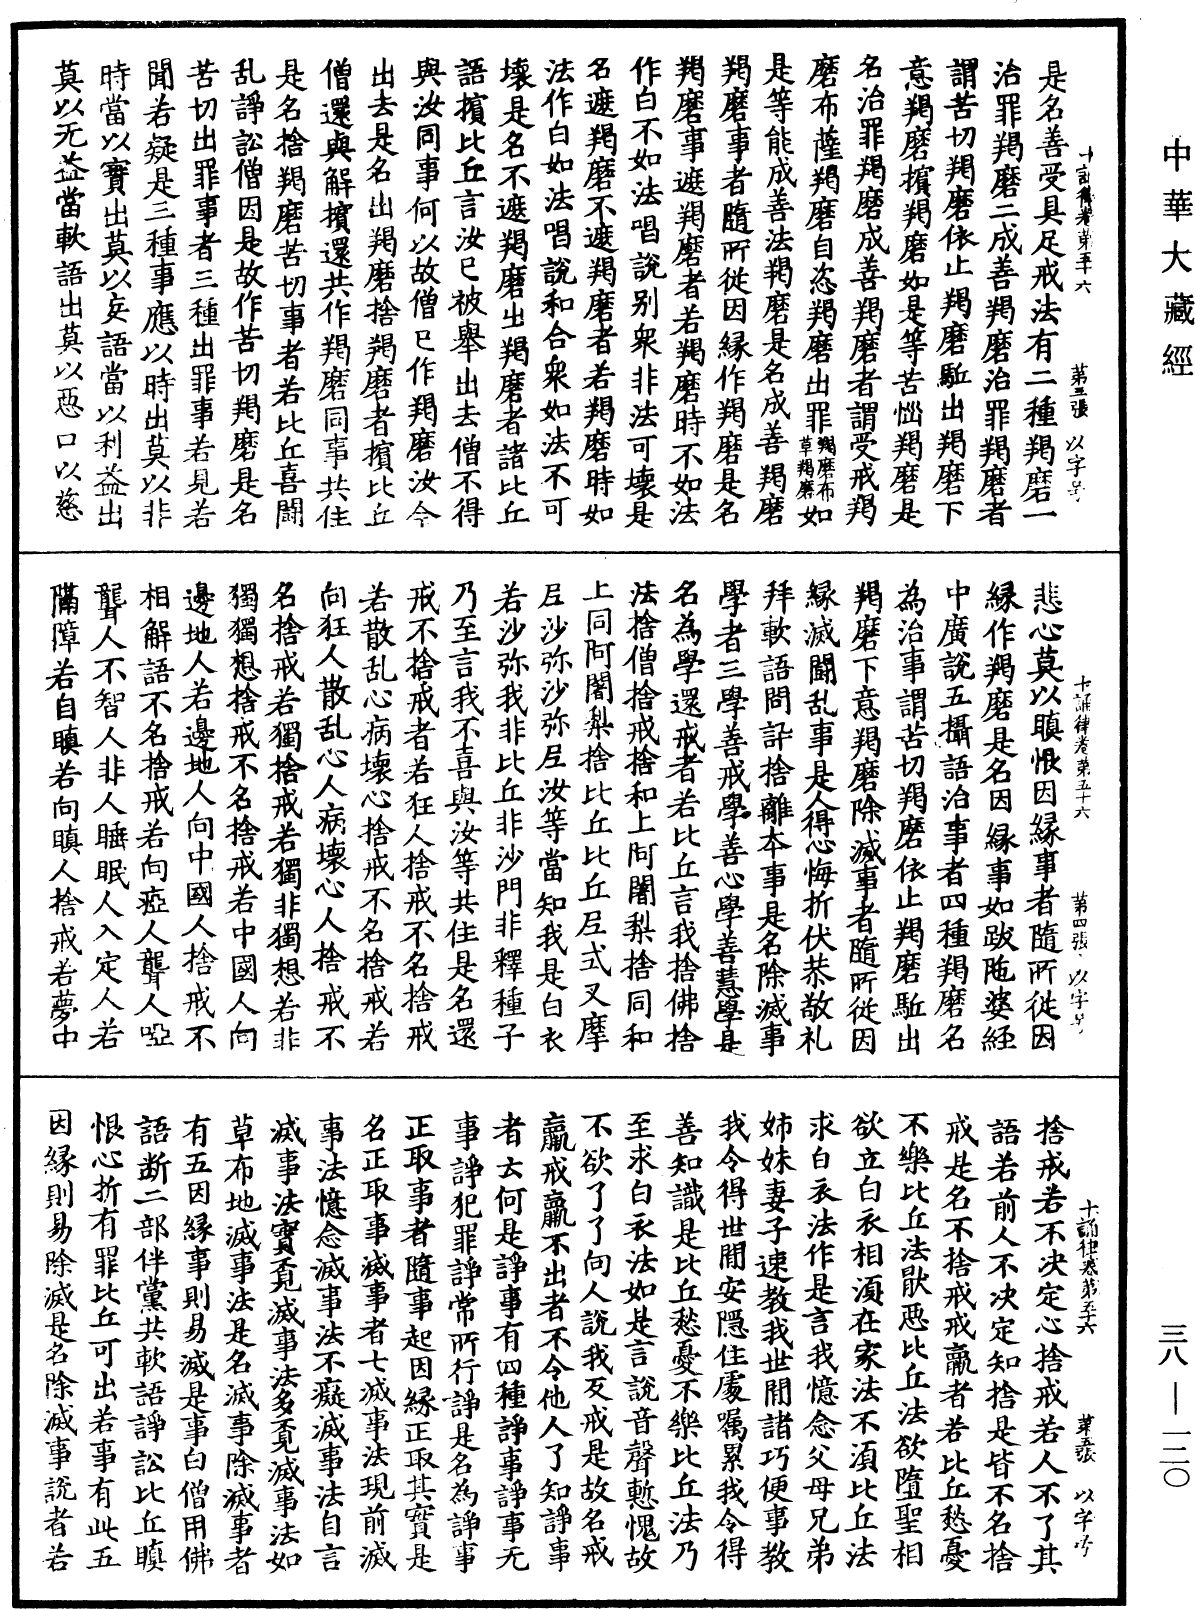 中華大藏經
十誦律卷第五十六　第三張　以字号
是名善受具足戒法有二種羯磨一
治罪羯磨二成善羯磨治罪羯磨者
謂苦切羯磨依止羯磨駈出羯磨下
意羯磨擯羯磨如是等苦惱羯磨是
名治罪羯磨成善羯磨者謂受戒羯
磨布薩羯磨自恣羯磨出罪羯磨布草羯磨如
是等能成善法羯磨是名成善羯磨
羯磨事者隨所從因緣作羯磨是名
羯磨事遮羯磨者若羯磨時不如法
作白不如法唱說別衆非法可壞是
名遮羯磨不遮羯磨者若羯磨時如
法作白如法唱說和合衆如法不可
壞是名不遮羯磨出羯磨者諸比丘
語擯比丘言汝已被舉出去僧不得
與汝同事何以故僧已作羯磨汝今
出去是名出羯磨捨羯磨者擯比丘
僧還與解擯還共作羯磨同事共住
是名捨羯磨苦切事者若比丘喜鬪
乱諍訟僧因是故作苦切羯磨是名
苦切出罪事者三種出罪事若見若
聞若疑是三種事應以時出莫以非
時當以實出莫以妄語當以利益出
莫以无益當軟語出莫以惡口以慈
十誦律卷第五十六　第四張　以字号
悲心莫以瞋恨因緣事者隨所從因
緣作羯磨是名因緣事如跋陁婆經
中廣說五攝語治事者四種羯磨名
為治事謂苦切羯磨依止羯磨駈出
羯磨下意羯磨除滅事者隨所從因
緣滅鬪乱事是人得心悔折伏恭敬礼
拜軟語問訊捨離本事是名除滅事
學者三學善戒學善心學善慧學是
名為學還戒者若比丘言我捨佛捨
法捨僧捨戒捨和上阿闍梨捨同和
上同阿闍梨捨比丘比丘尼式叉摩
尼沙弥沙弥尼汝等當知我是白衣
若沙弥我非比丘非沙門非釋種子
乃至言我不喜與汝等共住是名還
戒不捨戒者若狂人捨戒不名捨戒
若散乱心病壞心捨戒不名捨戒若
向狂人散乱心人病壞心人捨戒不
名捨戒若獨捨戒若獨非獨想若非
獨獨想捨戒不名捨戒若中國人向
邊地人若邊地人向中國人捨戒不
相解語不名捨戒若向瘂人聾人啞
聾人不智人非人睡眠人入定人若
隔障若自瞋若向瞋人捨戒若夢中
十誦律卷第五十六　第五張　以字号
捨戒若不決定心捨戒若人不了其
語若前人不決定知捨是皆不名捨
戒是名不捨戒戒羸者若比丘愁憂
不樂比丘法猒惡比丘法欲墮聖相
欲立白衣相湏在家法不湏比丘法
求白衣法作是言我憶念父母兄弟
姉妹妻子速教我世間諸巧便事教
我令得世間安隱住處囑累我令得
善知識是比丘愁憂不樂比丘法乃
至求白衣法如是言說音聲慙愧故
不欲了了向人說我反戒是故名戒
羸戒羸不出者不令他人了知諍事
者云何是諍事有四種諍事諍事无
事諍犯罪諍常所行諍是名為諍事
正取事者隨事起因緣正取其實是
名正取事滅事者七滅事法現前滅
事法憶念滅事法不癡滅事法自言
滅事法實覓滅事法多覓滅事法如
草布地滅事法是名滅事除滅事者
有五因緣事則易滅是事白僧用佛
語斷二部伴黨共軟語諍訟比丘瞋
恨心折有罪比丘可出若事有此五
因緣則易除滅是名除滅事說者若
三八—一二〇